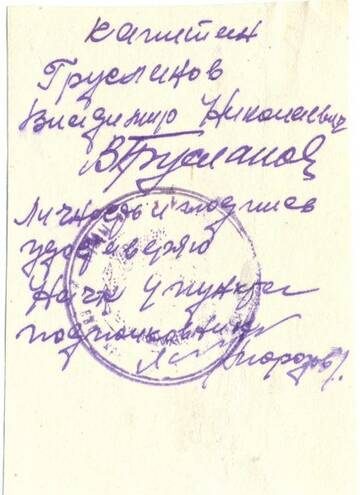 капитан
Грусланов
Владимир Николаевич
ВГрусланов
Личность и подпись
удостоверяю
Нач
подполковник